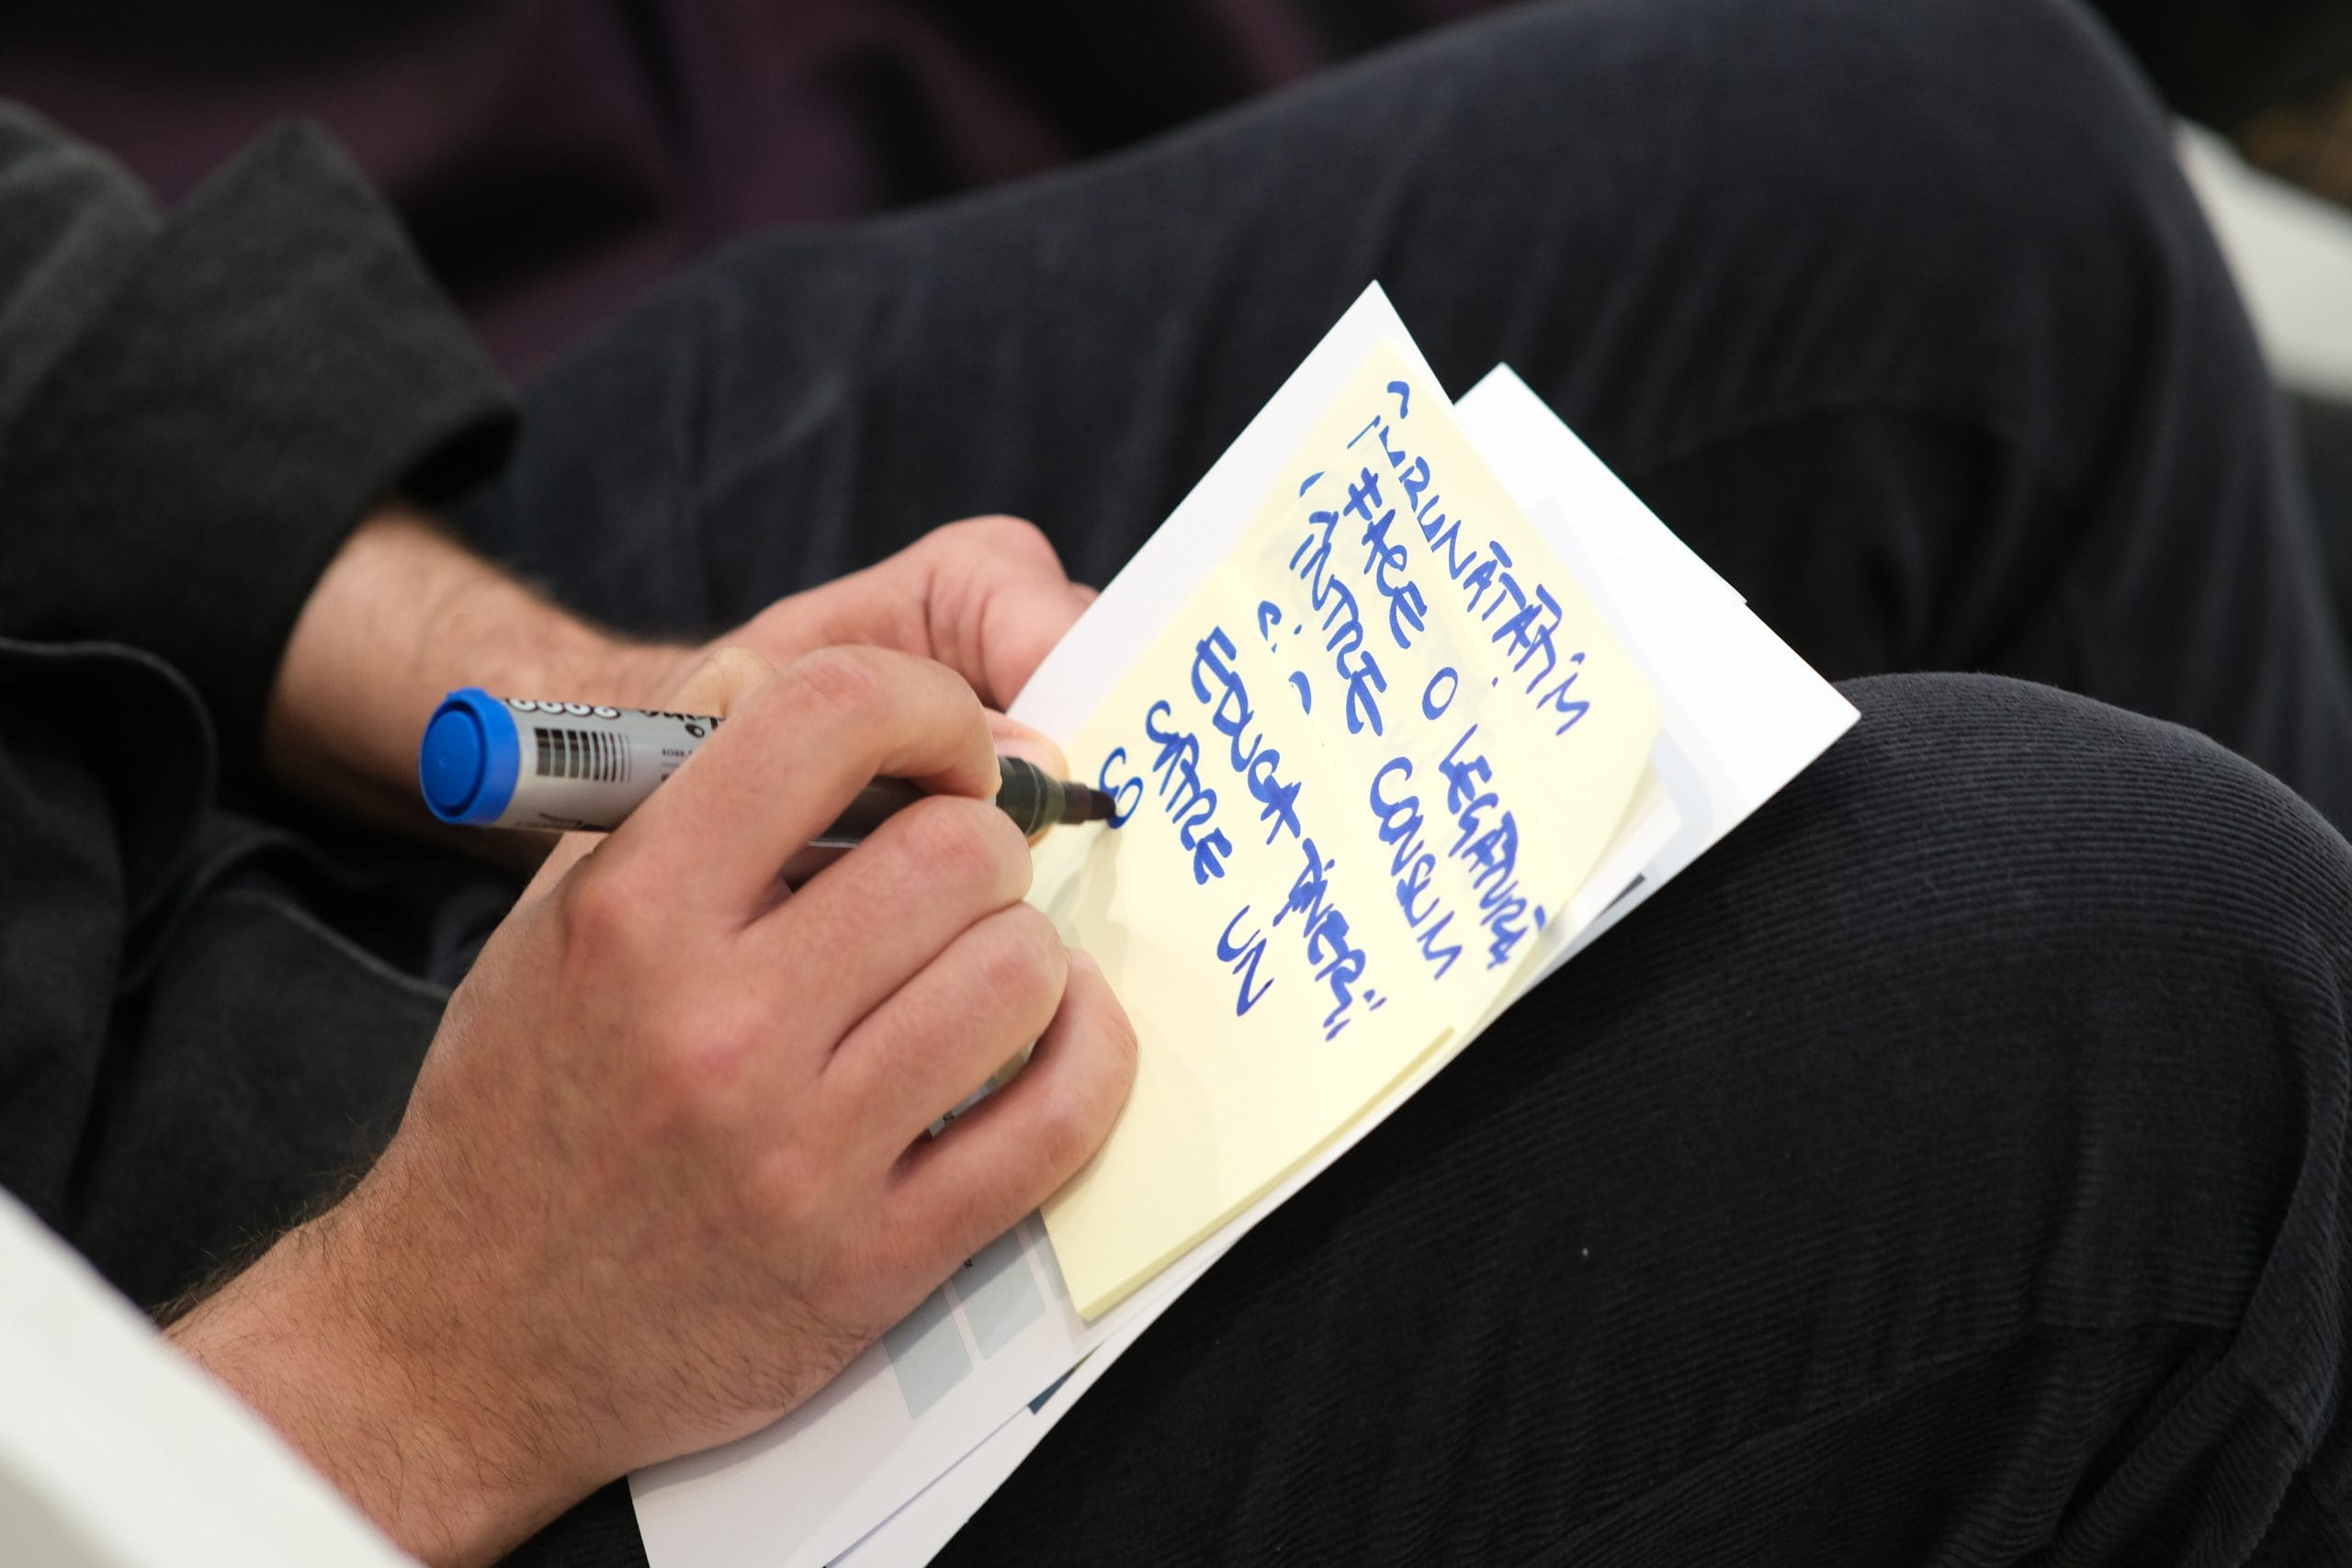 ÎMBUNĂTĂȚIM
FACE O LEGĂTURĂ
ÎNTRE CONSUM
ȘI
EDUCA TINERII
CĂTRE UN
CO
2000